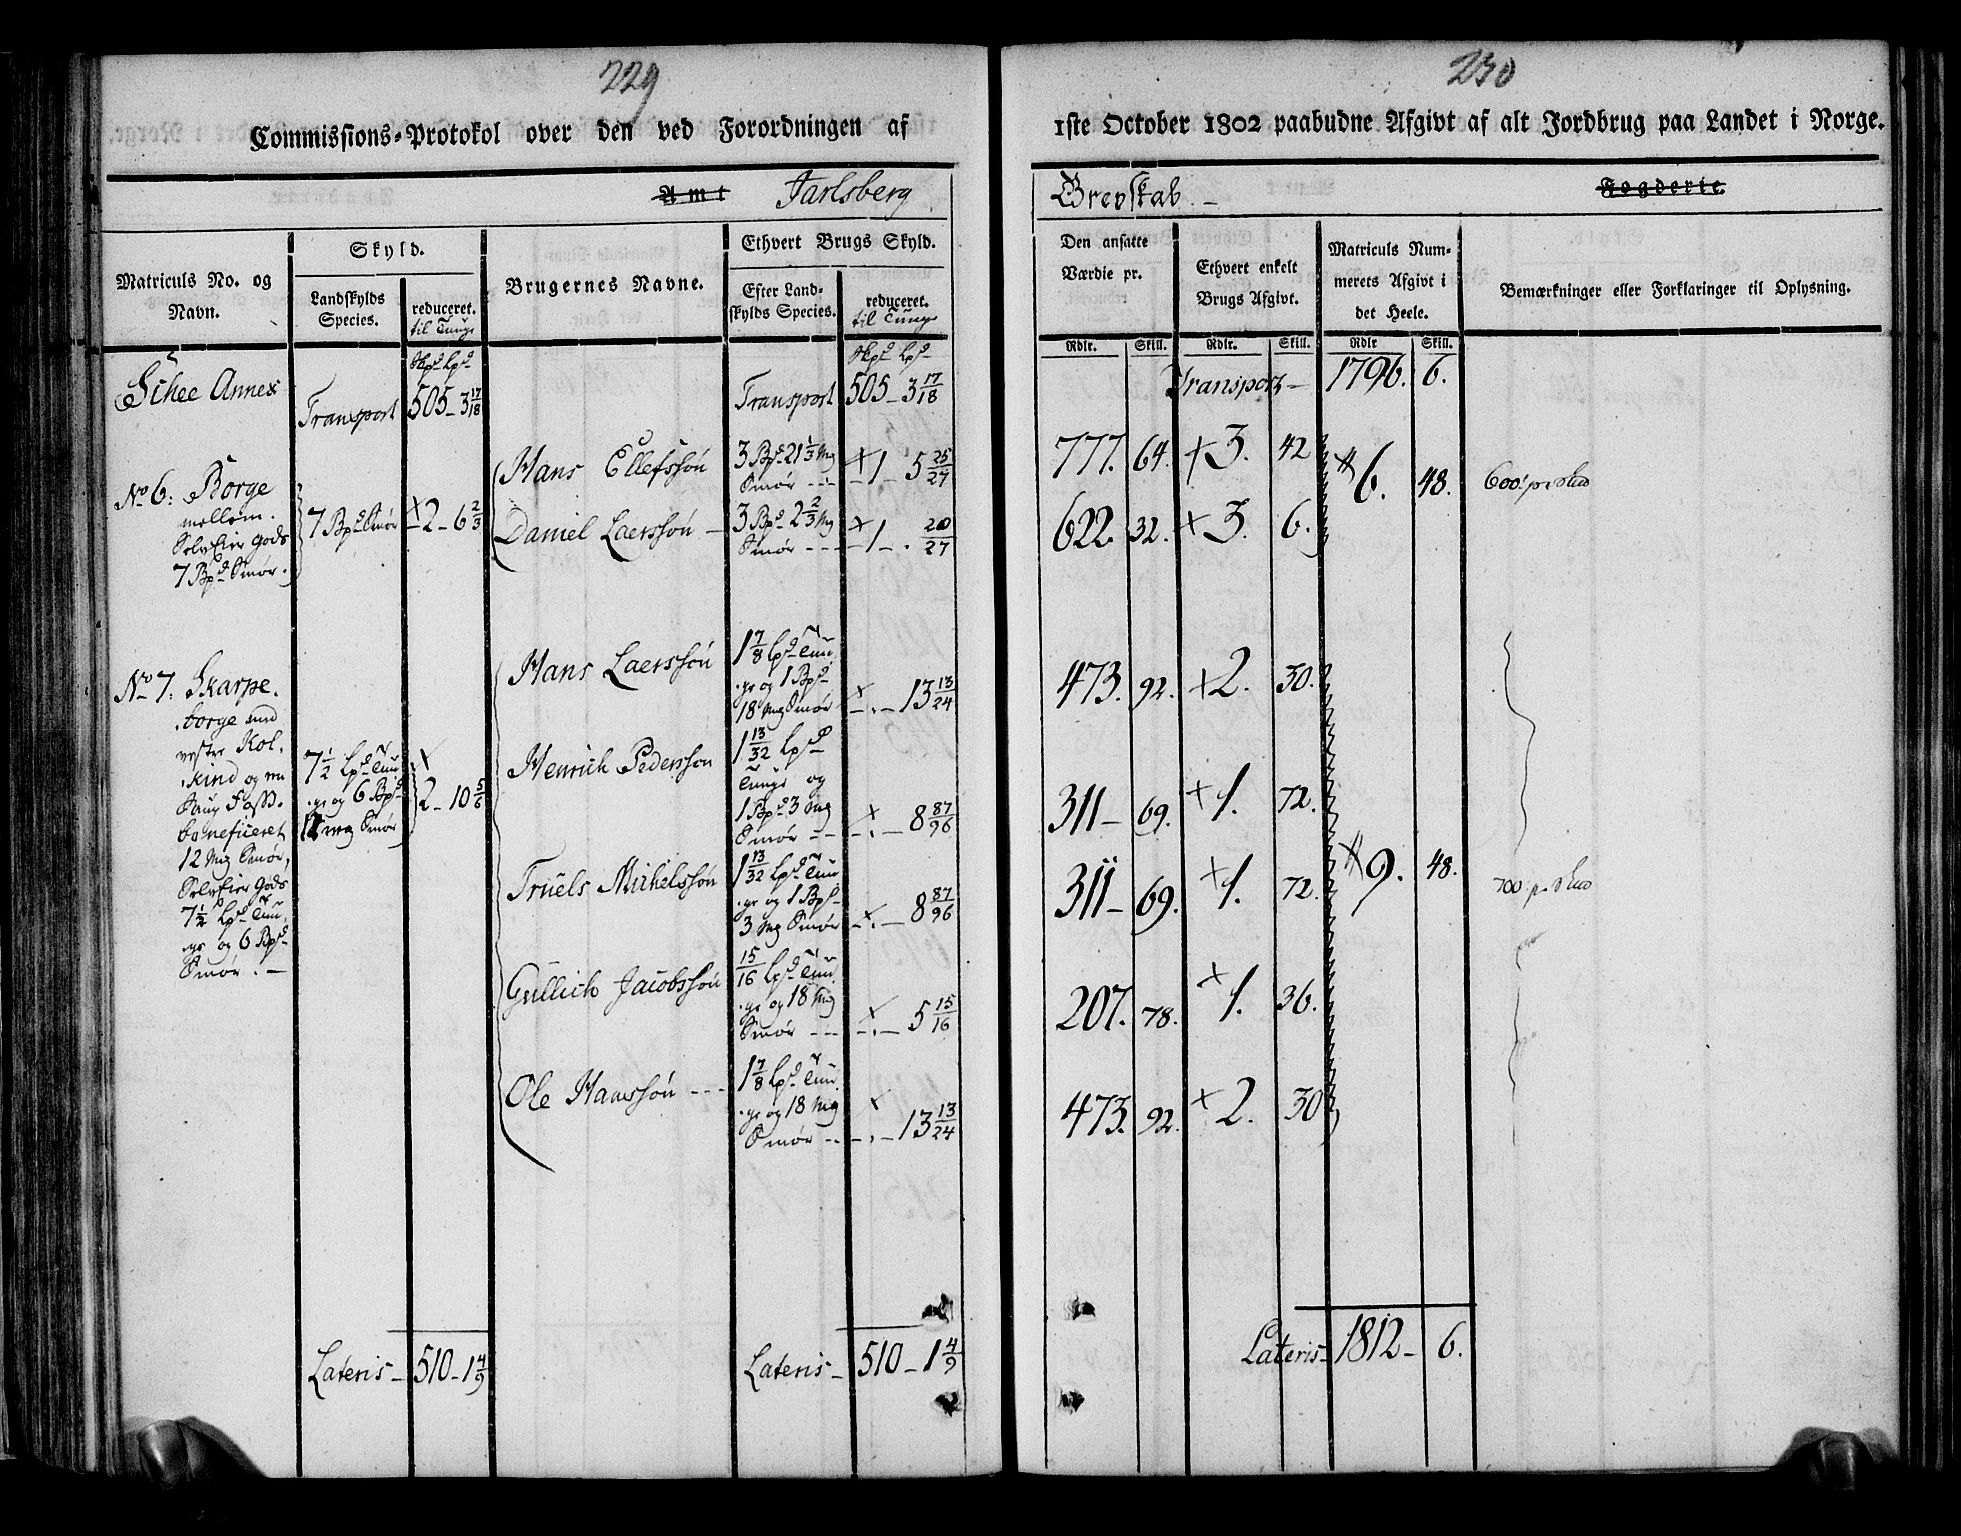 229
Commissions-Protokol over den ved Forordningen af
Amt Jarlsberg
Matriculs No. og Navn.
Skyld.
Landskylds Species.
reduceret. til Tunge
Brugernes Navne.
Ethvert Brugs Skyld.
Efter Landskylds Species.
reduceret. til Tunge
Schee Annex
Transport
Skpd Lpd
505 - 3 17/18
Transport
Skpd Lpd
505 - 3 17/18
No 6: Borge
mellem.
SelvEier Gods
7 Bpd Smør.
7 Bpd Smør
+ 2 - 6 2/3
Hans Ellefssøn
3 Bpd 21 1/3 Mg
Smør ---
+ 1 - 5 25/27
Daniel Laerssøn -
3 Bpd 2 2/3 Mg
Smør ---
+ 1 - . 20/27
No 7: Skarpe.
borge med
vestre Kol.
kind og en
beneficeret
12 Mg Smør,
SelvEier Gods
7 1/2 Lpd Tun.
ge og 6 Bpd
Smør. -
7 1/2 Lpd Tun
ge og 6 Bpd
12 mg Smør
+ 2 - 10 5/6
Hans Laerssøn
1 7/8 Lpd Tun
ge og 1 Bpd
18 Mg Smør
+ - . - 13 13/24
Henrich Pederssøn
1 13/32 Lpd
Tunge og
1 Bpd 3 Mg
Smør --
+ - . - 8 87/96
Truels Michelssøn
1 13/32 Lpd Tun
ge og 1 Bpd
3 Mg Smør
+ - . - 8 87/96
Gullich Jacobssøn
15/16 Lpd Tun
ge og 18 Mg
Smør ---
+ - . - 5 15/16
Ole Hanssøn ---
1 7/8 Lpd Tun
ge og 18 Mg
Smør --
+ - . - 13 13/24
Lateris - 510 - 1 4/9
Lateris - 510 - 1 4/9
230
1ste October 1802 paabudne Afgivt af alt Jordbrug paa Landet i Norge.
Grevskab. -
Fogderie.
Den ansatte Værdie pr.
Ethvert enkelt Brugs Afgivt.
Matriculs Nummerets Afgivt i det Heele.
Bemærkninger eller Forklaringer til Oplysning.
Rdlr. Skill. Rdlr. Skill. Rdlr Skill.
Transport - 1796. 6.
777. 64. + 3. 42
6. 48. 600 pr
622. 32. + 3. 6.
473. 92. + 2. 30.
311 - 69. + 1. 72.
9. 48. 700 p.
311 - 69. + 1. 72.
207. 78. + 1. 36.
473. 92. + 2. 30
Lateris - 1812 - 6.